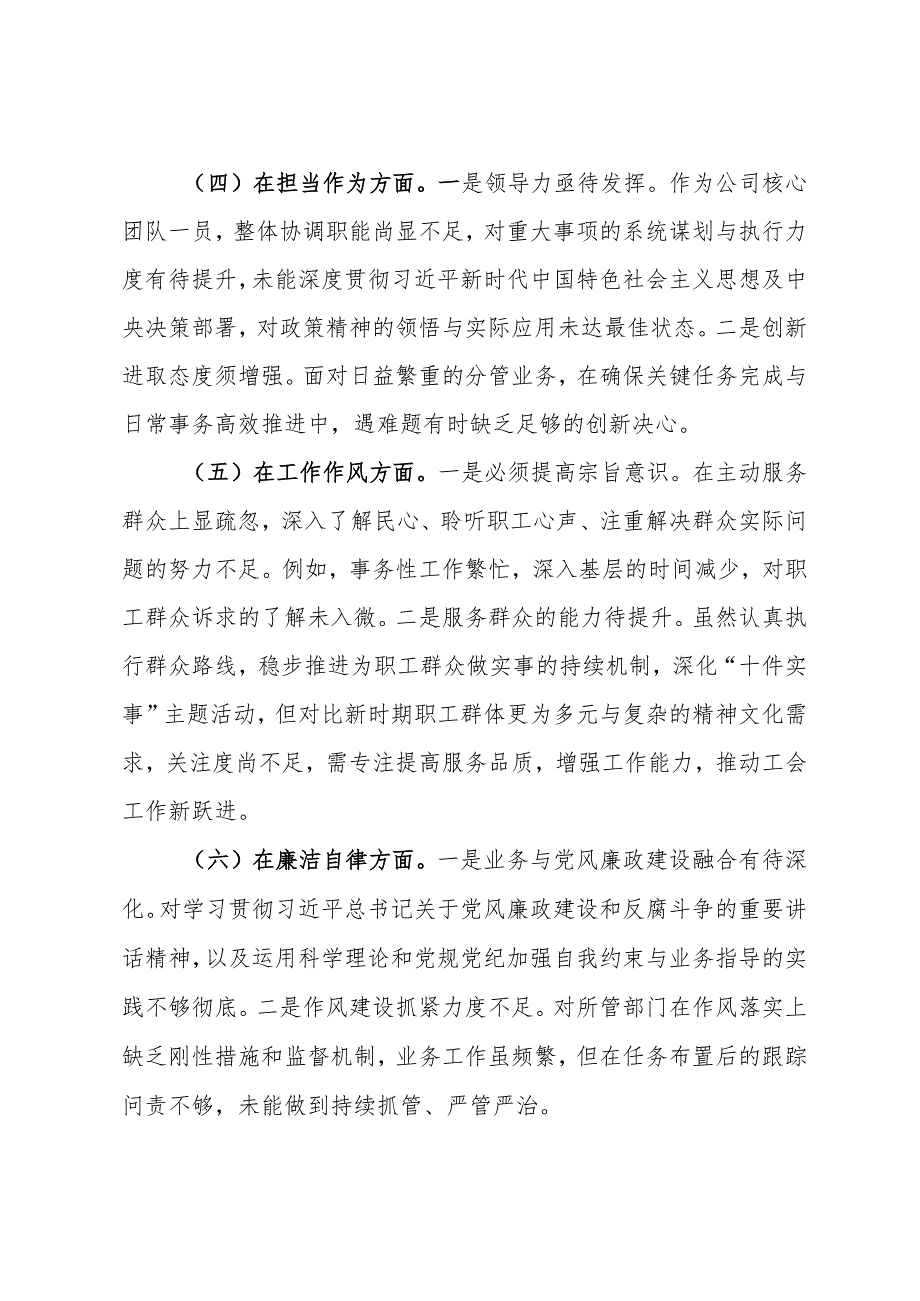 （四）在担当作为方面。一是领导力亟待发挥。作为公司核心
团队一员，整体协调职能尚显不足，对重大事项的系统谋划与执行力
度有待提升，未能深度贯彻习近平新时代中国特色社会主义思想及中
央决策部署，对政策精神的领悟与实际应用未达最佳状态。二是创新
进取态度须增强。面对日益繁重的分管业务，在确保关键任务完成与
日常事务高效推进中，遇难题有时缺乏足够的创新决心。
（五）在工作作风方面。一是必须提高宗旨意识。在主动服务
群众上显疏忽，深入了解民心、聆听职工心声、注重解决群众实际问
题的努力不足。例如，事务性工作繁忙，深入基层的时间减少，对职
工群众诉求的了解未入微。二是服务群众的能力待提升。虽然认真执
行群众路线，稳步推进为职工群众做实事的持续机制，深化“十件实
事”主题活动，但对比新时期职工群体更为多元与复杂的精神文化需
求，关注度尚不足，需专注提高服务品质，增强工作能力，推动工会
工作新跃进。
（六）在廉洁自律方面。一是业务与党风廉政建设融合有待深
化。对学习贯彻习近平总书记关于党风廉政建设和反腐斗争的重要讲
话精神，以及运用科学理论和党规党纪加强自我约束与业务指导的实
践不够彻底。二是作风建设抓紧力度不足。对所管部门在作风落实上
缺乏刚性措施和监督机制，业务工作虽频繁，但在任务布置后的跟踪
问责不够，未能做到持续抓管、严管严治。